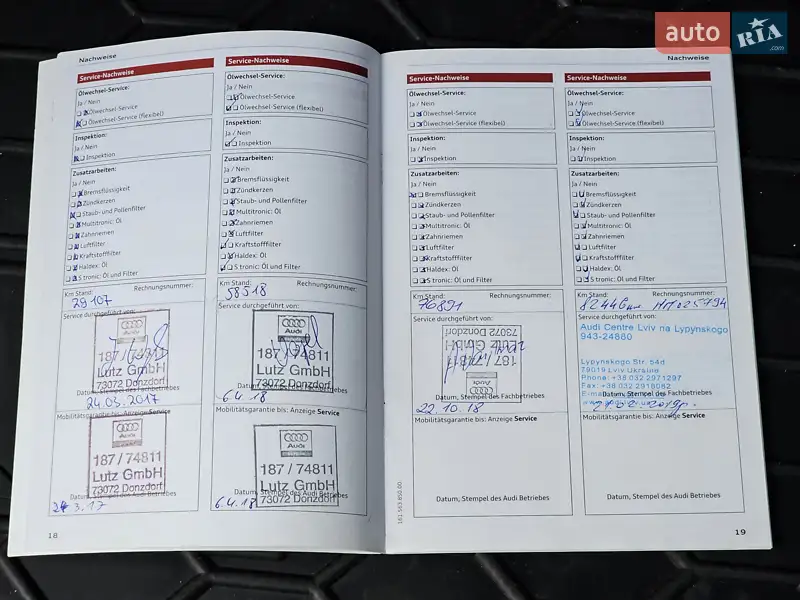 auto RIA.com
Nachweise
Service-Nachweise
Ölwechsel-Service:
Ja / Nein
Ölwechsel-Service
Ölwechsel-Service (flexibel)
Inspektion:
Ja / Nein
Inspektion
Zusatzarbeiten:
Ja / Nein
Bremsflüssigkeit
Zündkerzen
Staub- und Pollenfilter
Multitronic: Öl
Zahnriemen
Luftfilter
Kraftstofffilter
Haldex: Öl
S tronic: Öl und Filter
Km Stand: Rechnungsnummer:
29107
Service durchgeführt von:
Audi
187 / 74811
Lutz GmbH
73072 Donzdorf
Datum, Stempel des Fachbetriebes
24.03.2017
Mobilitätsgarantie bis: Anzeige Service
Audi
187 / 74811
Lutz GmbH
73072 Donzdorf
Datum, Stempel des Audi Betriebes
24.3.17
18
Service-Nachweise
Ölwechsel-Service:
Ja / Nein
Ölwechsel-Service
Ölwechsel-Service (flexibel)
Inspektion:
Ja / Nein
Inspektion
Zusatzarbeiten:
Ja / Nein
Bremsflüssigkeit
Zündkerzen
Staub- und Pollenfilter
Multitronic: Öl
Zahnriemen
Luftfilter
Kraftstofffilter
Haldex: Öl
S tronic: Öl und Filter
Km Stand: Rechnungsnummer:
58518
Service durchgeführt von:
Audi
187 / 74811
Lutz GmbH
73072 Donzdorf
Datum, Stempel des Fachbetriebes
6.4.18
Mobilitätsgarantie bis: Anzeige Service
Audi
187 / 74811
Lutz GmbH
73072 Donzdorf
Datum, Stempel des Audi Betriebes
6.4.18
Nachweise
Service-Nachweise
Ölwechsel-Service:
Ja / Nein
Ölwechsel-Service
Ölwechsel-Service (flexibel)
Inspektion:
Ja / Nein
Inspektion
Zusatzarbeiten:
Ja / Nein
Bremsflüssigkeit
Zündkerzen
Staub- und Pollenfilter
Multitronic: Öl
Zahnriemen
Luftfilter
Kraftstofffilter
Haldex: Öl
S tronic: Öl und Filter
Km Stand: Rechnungsnummer:
76891
Service durchgeführt von:
Audi
187 / 74811
Lutz GmbH
73072 Donzdorf
Datum, Stempel des Fachbetriebes
22.10.18
Mobilitätsgarantie bis: Anzeige Service
Datum, Stempel des Audi Betriebes
161.563.850.00
Service-Nachweise
Ölwechsel-Service:
Ja / Nein
Ölwechsel-Service
Ölwechsel-Service (flexibel)
Inspektion:
Ja / Nein
Inspektion
Zusatzarbeiten:
Ja / Nein
Bremsflüssigkeit
Zündkerzen
Staub- und Pollenfilter
Multitronic: Öl
Zahnriemen
Luftfilter
Kraftstofffilter
Haldex: Öl
S tronic: Öl und Filter
Km Stand: Rechnungsnummer:
Service durchgeführt von:
Audi Centre Lviv na Lypynskogo
943-24880
Lypynskogo Str. 54d
79019 Lviv Ukraine
Phone: +38 032 2971297
Fax: +38 032 2918082
Datum, Stempel des Fachbetriebes
Mobilitätsgarantie bis: Anzeige Service
Datum, Stempel des Audi Betriebes
19